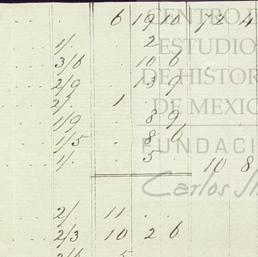 6 19 10 72 4
1/. 2
3/6 10 6
2/9 13 9
2/. 1
1/9 8 9
1/5 8 6
1/. 5
10 8
2/. 11
2/3 10 2 6
CENTRO
ESTUDIOS
DE HISTOR
DE MEXIC
FUNDACI
Carlos